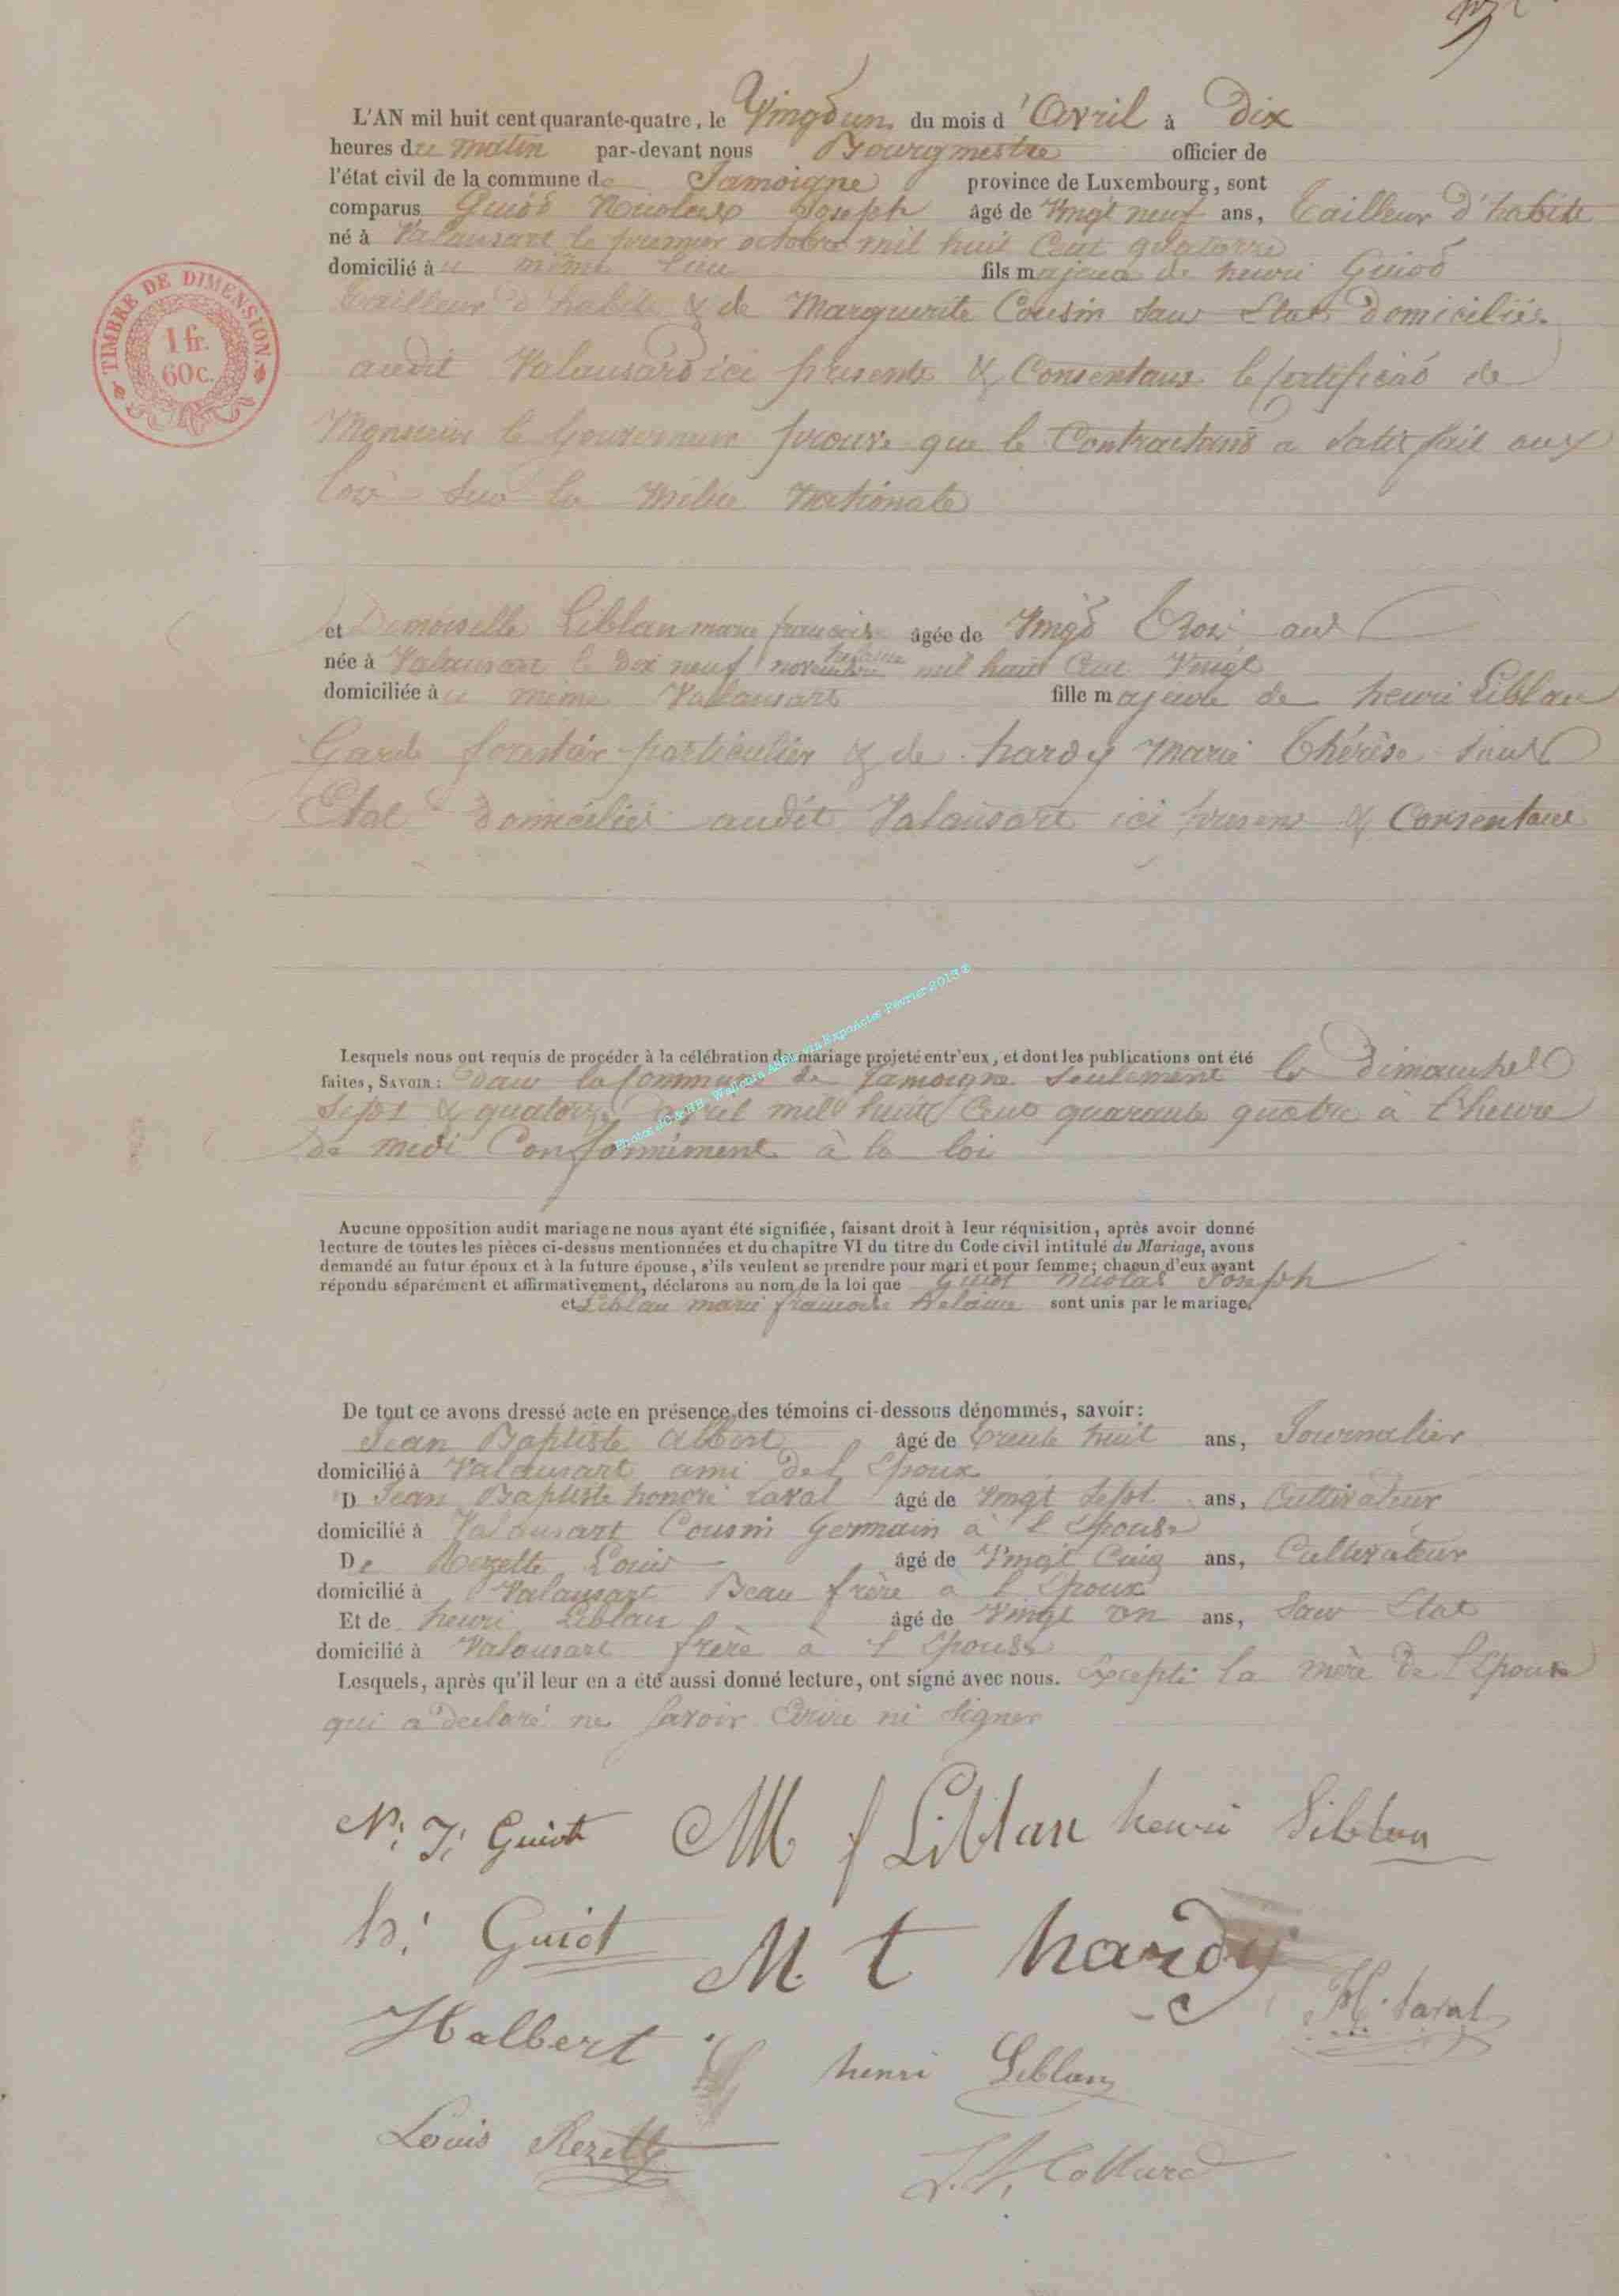 L'AN mil huit cent quarante-quatre, le Vingt un du mois d'Avril à Dix
heures du matin par-devant nous Bourgmestre officier de
l'état civil de la commune de Jamoigne province de Luxembourg, sont
comparus Guiot Nicolas Joseph âgé de Vingt neuf ans, Tailleur d'habits
né à Valansart le premier octobre mil huit Cent quatorze
domicilié à ce même lieu fils majeur de henri Guiot
tailleur d'habits & de Marguerite Cousin Sans Etat domiciliés
audit Valansard ici présents & Consentans le certificat de
Monsieur le Gouverneur prouve que le Contractant a Satisfait aux
lois Sur la Milice Nationale
et Demoiselle Liblan marie françoise âgée de Vingt Trois ans
helaine
née à Valansart le Dix neuf novembre mil huit Cent Vingt
domiciliée à ce même Valansart fille majeure de henri Liblan
Garde forestier particulier & de hardy Marie Thérèse Sans
Etat domiciliés audit Valansart ici présens & Consentans
TIMBRE DE DIMENSION.
1 fr.
60c.
Lesquels nous ont requis de procéder à la célébration du mariage projeté entr'eux, et dont les publications ont été
faites, SAVOIR: Dans la Commune de Jamoigne Seulement les Dimanches
Sept & quatorze avril mil huit Cent quarante quatre à l'heure
de midi Conformément à la loi
Photos JC & HB - Wallonia ASBL via ExpoActes Février 2013 ®
Aucune opposition audit mariage ne nous ayant été signifiée, faisant droit à leur réquisition, après avoir donné
lecture de toutes les pièces ci-dessus mentionnées et du chapitre VI du titre du Code civil intitulé du Mariage, avons
demandé au futur époux et à la future épouse, s'ils veulent se prendre pour mari et pour femme; chacun d'eux ayant
répondu séparément et affirmativement, déclarons au nom de la loi que Guiot Nicolas Joseph
et Liblan marie francoise helaine sont unis par le mariage.
De tout ce avons dressé acte en présence des témoins ci-dessous dénommés, savoir:
Jean Baptiste Albert âgé de Trente huit ans, Journalier
domicilié à Valansart ami de l'Epoux
D Jean Baptiste honoré Laval âgé de Vingt Sept ans, Cultivateur
domicilié à Valansart Cousin Germain à l'Epouse
De Rezette Louis âgé de Vingt Cinq ans, Cultivateur
domicilié à Valansart Beau frère à l'Epoux
Et de henri Liblan âgé de Vingt un ans, Sans Etat
domicilié à Valansart frère à l'Epouse
Lesquels, après qu'il leur en a été aussi donné lecture, ont signé avec nous. Excepté la mère de l'Epoux
qui a declaré ne Savoir Ecrire ni Signer
N: J: Guiot M f Liblan henri Liblan
h: Guiot M. t hardy
Halbert H. Laval
henri Liblan
Louis Rezette
Collard